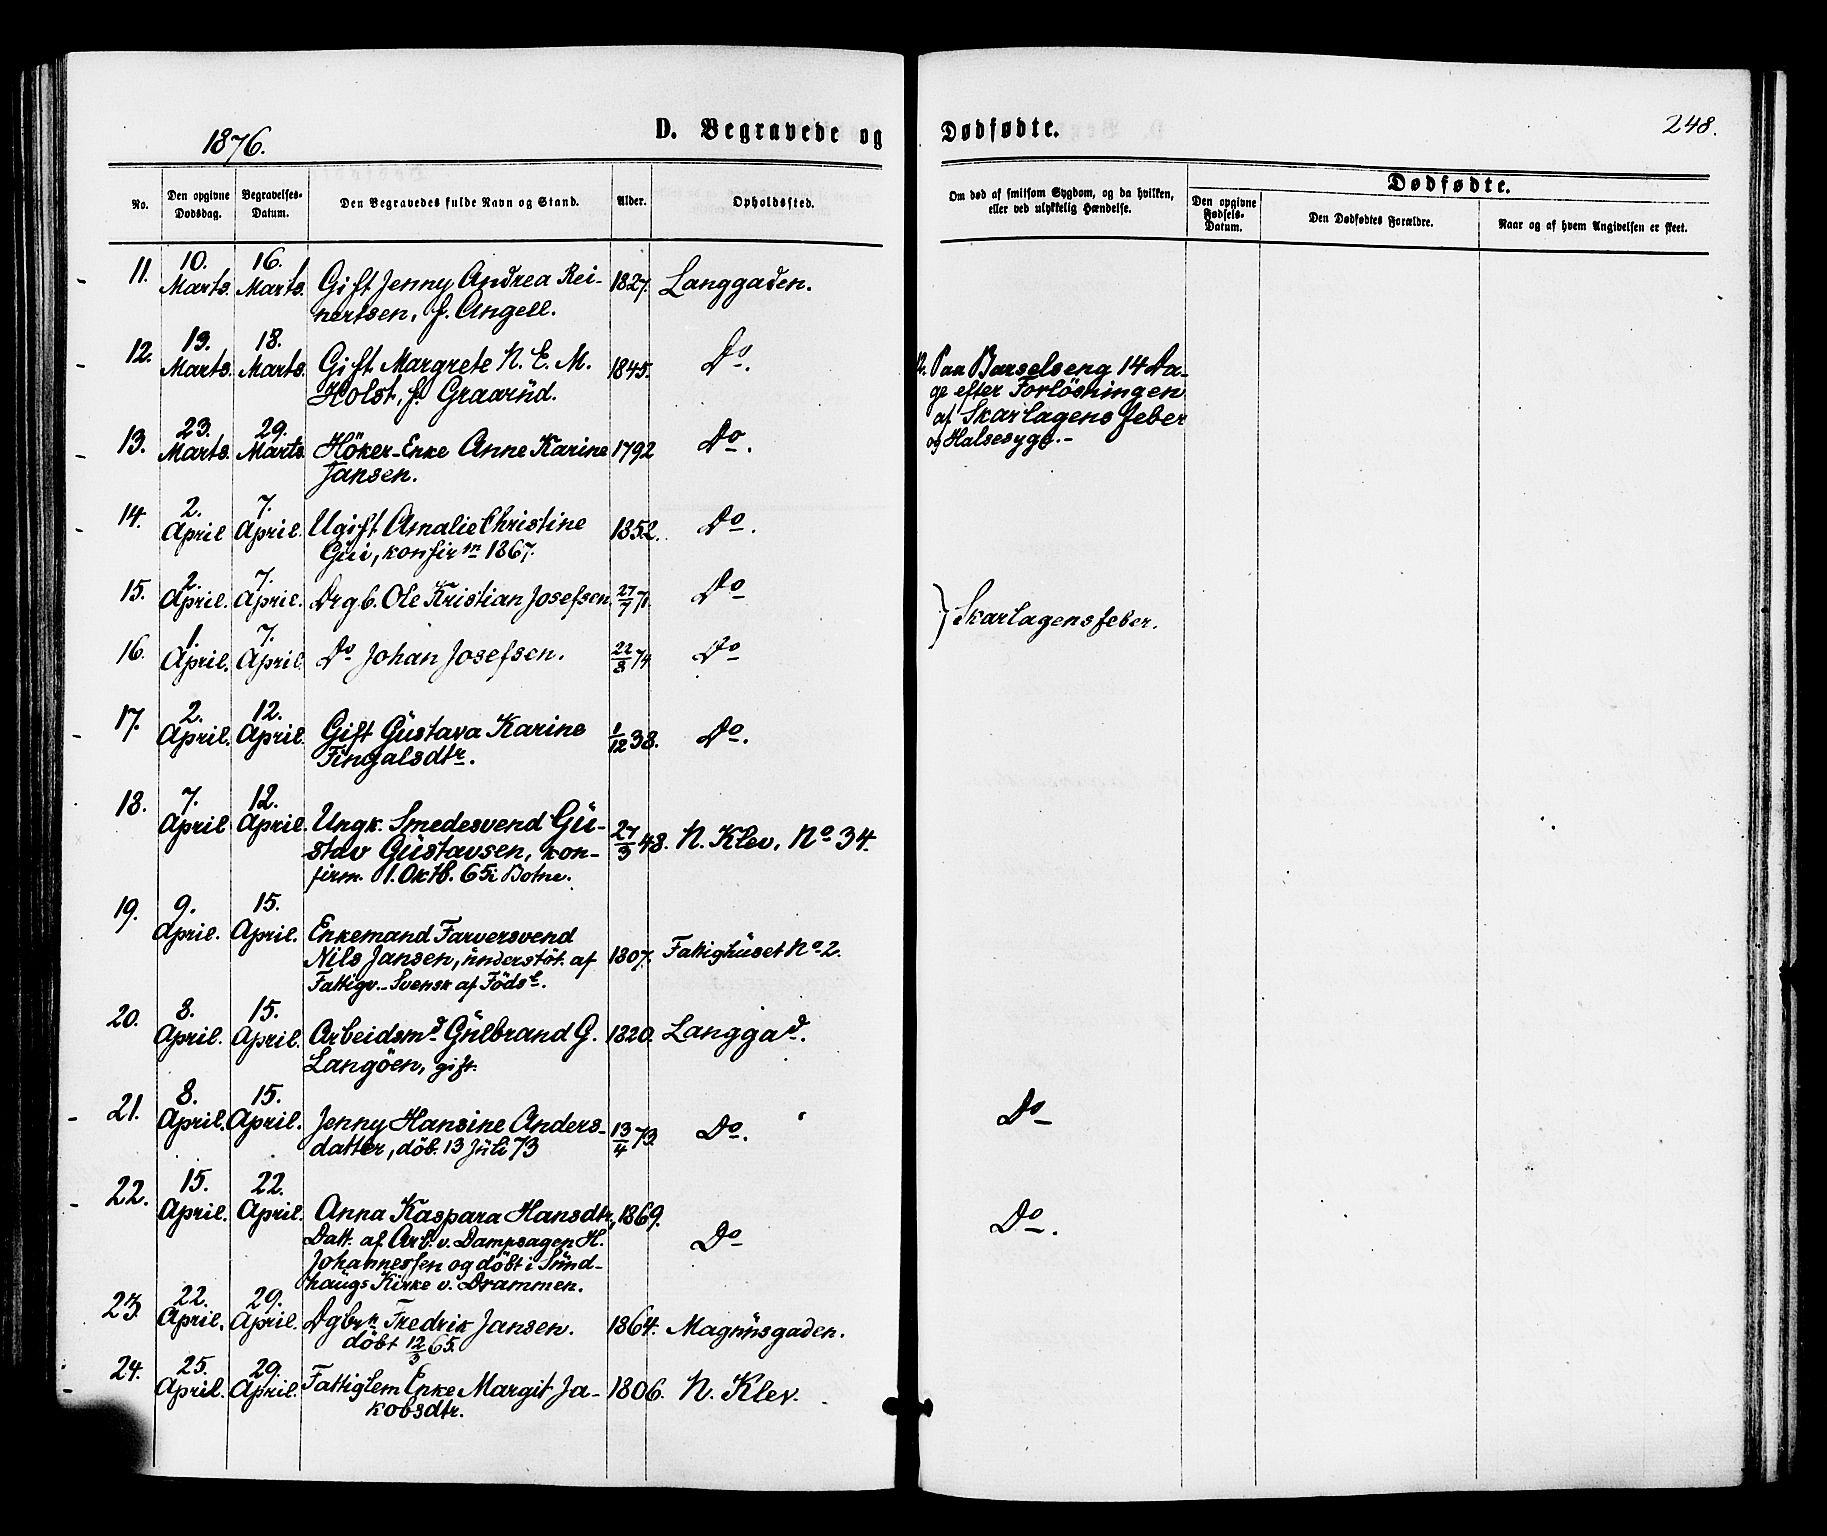 1876.
D. Begravede og Dødfødte.
248.
No.
Den opgivne Dødsdag.
Begravelses-Datum.
Den Begravedes fulde Navn og Stand.
Alder.
Opholdssted.
Om død af smitsom Sygdom, og da hvilken, eller ved ulykkelig Hændelse.
Dødfødte.
Den opgivne Fødsels-Datum.
Den Dødfødtes Forældre.
Naar og af hvem Angivelsen er skeet.
11. 10. Marts. 16. Marts. Gift Jenny Andrea Rei- 1827. Langgaden.
nertsen, f. Angell.
12. 13. Marts. 18. Marts. Gift Margrete N. E. M. 1845. Do. 12. Paa Barselseng 14 Da-
Holst, f. Graarud. ge efter Forlösningen
af Skarlagensfeber
og Halsesyge.-
13. 23. Marts. 29. Marts. Höker-Enke Anne Karine 1792 Do.
Jansen.
14. 2. April 7. April. Ugift Amalie Christine 1852. Do.
Gui, konfirm 1867.
15. 2. April. 7. April. Drgb. Ole Kristian Josefsen. 27/7 71. Do } Skarlagensfeber.
16. 1. April. 7. April. Do Johan Josefsen. 22/8 74 Do
17. 2. April. 12. April. Gift Gustava Karine 1/12 38. Do.
Fingalsdtr.
18. 7. April 12. April. Ungk. Smedesvend Gu- 27/3 48. N. Klev, No 34.
stav Gustavsen, kon-
firm. 1. Oktb. 65 i Botne.
19. 9. April. 15. April. Enkemand Farversvend
Nils Jansen, understöt. af 1807. Fattighuset No 2.
Fattigv.- Svensk af Föds.
20. 8. April. 15. April. Arbeidsmd Gulbrand G. 1820. Langgad.
Langöen, gift.
21. 8. April. 15. April. Jenny Hansine Anders- 13/4 73. Do. Do
datter, döb. 13 Juli 73
22. 15. April. 22. April. Anna Kaspara Hansdtr, 1869. Do Do.
Datt. af Arb. v. Dampsagen H.
Johannessen og döbt i Sund-
haugs Kirke v. Drammen.
23. 22. April. 29. April. Dgbrn Fredrik Jansen. 1864. Magnusgaden.
döbt 12/3 65.
24. 25. April. 29. April. Fattiglem Enke Margit Ja- 1806. N. Klev.
kobsdtr.